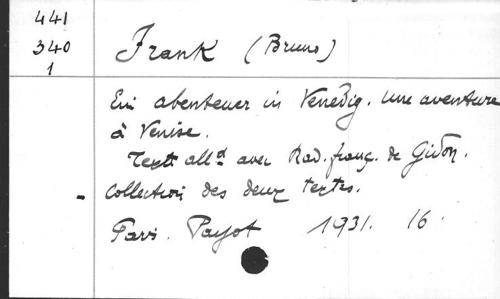 441
340
1
Frank (Bruno)
Ein abenteuer in Venedig. Une aventure
à Venise.
Texte alld avec trad. franç. de Gidon.
- Collection des deux textes.
Paris. Payot 1931. 16.